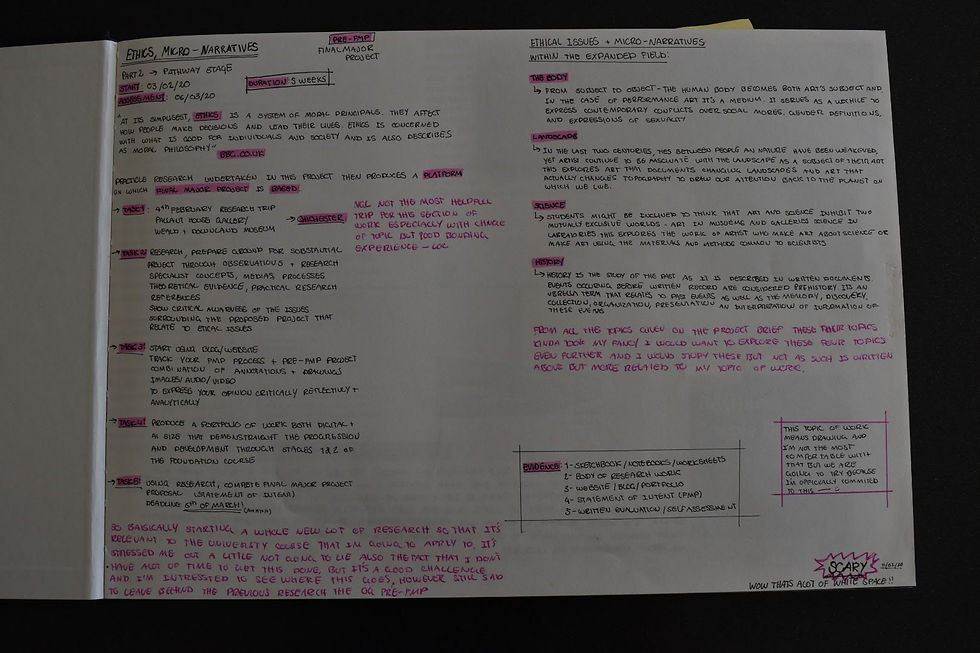 ETHICS, MICRO-NARRATIVES
PRE-FMP
FINAL MAJOR
PROJECT
PART 2 → PATHWAY STAGE
START: 03/02/20
DURATION: 5 WEEKS
ASSESSMENT: 06/03/20
"AT ITS SIMPLEST, ETHICS IS A SYSTEM OF MORAL PRINCIPALS. THEY AFFECT
HOW PEOPLE MAKE DECISIONS AND LEAD THEIR LIVES. ETHICS IS CONCERNED
WITH WHAT IS GOOD FOR INDIVIDUALS AND SOCIETY AND IS ALSO DESCRIBES
AS MORAL PHILOSOPHY"
BBC.CO.UK
PRACTICLE RESEARCH UNDERTAKEN IN THIS PROJECT THEN PRODUCES A PLATFORM
ON WHICH FINAL MAJOR PROJECT IS BASED:
→ TASK1: 4TH FEBRUARY RESEARCH TRIP
PALLANT HOUSE GALLERY
WEALD + DOWNLAND MUSEUM
→ CHICHESTER
NGL NOT THE MOST HELPFULL
TRIP FOR THIS SECTION OF
WORK ESPECIALLY WITH CHANGE
OF TOPIC BUT GOOD BONDING
EXPERIENCE - LOL
→ TASK 2: RESEARCH, PREPARE GROUND FOR SUBSTANTIAL
PROJECT THROUGH OBSERVATIONS + RESEARCH
SPECIALIST CONCEPTS, MEDIAS, PROCESSES
THEORETICAL EVIDENCE, PRACTICAL RESEARCH
REFERENCES
SHOW CRITICAL AWARNESS OF THE ISSUES
SURROUNDING THE PROPOSED PROJECT THAT
RELATE TO ETICAL ISSUES
→ TASK 3: START USING BLOG/WEBSITE
TRACK YOUR FMP PROCESS + PRE-FMP PROJECT
COMBINATION OF ANNOTATIONS + DRAWINGS
IMAGES/AUDIO/VIDEO
TO EXPRESS YOUR OPINION CRITICALLY REFLECTIVLY +
ANALYTICALLY
→ TASK 4: PRODUCE A PORTFOLIO OF WORK BOTH DIGITAL +
A1 SIZE THAT DEMONSTRAIGHT THE PROGRESSION
AND DEVELOPMENT THROUGH STAGES 1&2 OF
THE FOUNDATION COURSE
→ TASK 5: USING RESEARCH, COMPLETE FINAL MAJOR PROJECT
PROPOSAL (STATEMENT OF INTENT)
DEADLING 6TH OF MARCH! (AHHHH)
SO BASICALLY STARTING A WHOLE NEW LOT OF RESEARCH SO THAT IT'S
RELEVANT TO THE UNIVERSITY COURSE THAT IM GOING TO APPLY TO, IT'S
STRESSED ME OUT A LITTLE NOT GOING TO LIE ALSO THE FACT THAT I DON'T
HAVE ALOT OF TIME TO GET THIS DONE, BUT IT'S A GOOD CHALLENGE
AND I'M INTRESSTED TO SEE WHERE THIS GOES, HOWEVER STILL SAD
TO LEAVE BEHIND THE PREVIOUS RESEARCH THE OG PRE-FMP
ETHICAL ISSUES + MICRO-NARRATIVES
WITHIN THE EXPANDED FIELD:
THE BODY
↳ FROM SUBJECT TO OBJECT - THE HUMAN BODY BECOMES BOTH ART'S SUBJECT AND
IN THE CASE OF PERFORMANCE ART IT'S A MEDIUM. IT SERVES AS A VEHICLE TO
EXPRESS CONTEMPORARY CONFLICTS OVER SOCIAL MORES, GENDER DEFINITIONS,
AND EXPRESSIONS OF SEXUALITY
LANDSCAPE
↳ IN THE LAST TWO CENTURIES, TIES BETWEEN PEOPLE AN NATURE HAVE BEEN WEAKENED,
YET ARTIST CONTINUE TO BE WITH THE LANDSCAPE AS A SUBJECT OF THEIR ART
THIS EXPLORES ART THAT DOCUMENTS CHANGING LANDSCAPES AND ART THAT
ACTUALLY CHANGES TOPOGRAPHY TO DRAW OUR ATTENTION BACK TO THE PLANET ON
WHICH WE LIVE.
SCIENCE
↳ STUDENTS MIGHT BE INCLINED TO THINK THAT ART AND SCIENCE INHIBIT TWO
MUTUALLY EXCLUSIVE WORLDS - ART IN MUSEUMS AND GALLERIES SCIENCE IN
LABRATORIES. THIS EXPLORES THE WORK OF ARTIST WHO MAKE ART ABOUT SCIENCE OR
MAKE ART USING THE MATERIALS AND METHODS COMMON TO SCIENTISTS
HISTORY
↳ HISTORY IS THE STUDY OF THE PAST AS IT IS DESCRIBED IN WRITTEN DOCUMENTS.
EVENTS OCCURING BEFORE WRITTEN RECORD ARE CONSIDERED PREHISTORY. ITS AN
UBRELLA TERM THAT RELATES TO PAST EVENTS AS WELL AS THE MEMORY, DISCOVERY,
COLLECTION, ORGANIZATION, PRESENTATION AN INTERPRETATION OF INFORMATION OF
THESE EVENTS
FROM ALL THE TOPICS GIVEN ON THE PROJECT BRIEF THESE FOUR TOPICS
KINDA TOOK MY FANCY I WOULD WANT TO EXPLORE THESE FOUR TOPICS
EVEN FURTHER AND I WOULD STUDY THESE BUT NOT AS SUCH IS WRITTEN
ABOVE BUT MORE RELATED TO MY TOPIC OF WORK.
EVIDENCE: 1- SKETCHBOOK/NOTEBOOKS/WORKSHEETS
2- BODY OF RESEARCH WORK
3- WEBSITE/BLOG/PORTFOLIO
4- STATEMENT OF INTENT (FMP)
5- WRITTEN EVALUATION/SELF ASSESSMENT
THIS TOPIC OF WORK
MEANS DRAWING AND
I'M NOT THE MOST
COMFORTABLE WITH
THAT BUT WE ARE
GOING TO TRY BECAUSE
IM OFFICIALLY COMMITED
TO THIS
SCARY
WOW THATS ALOT OF WHITE SPACE!!